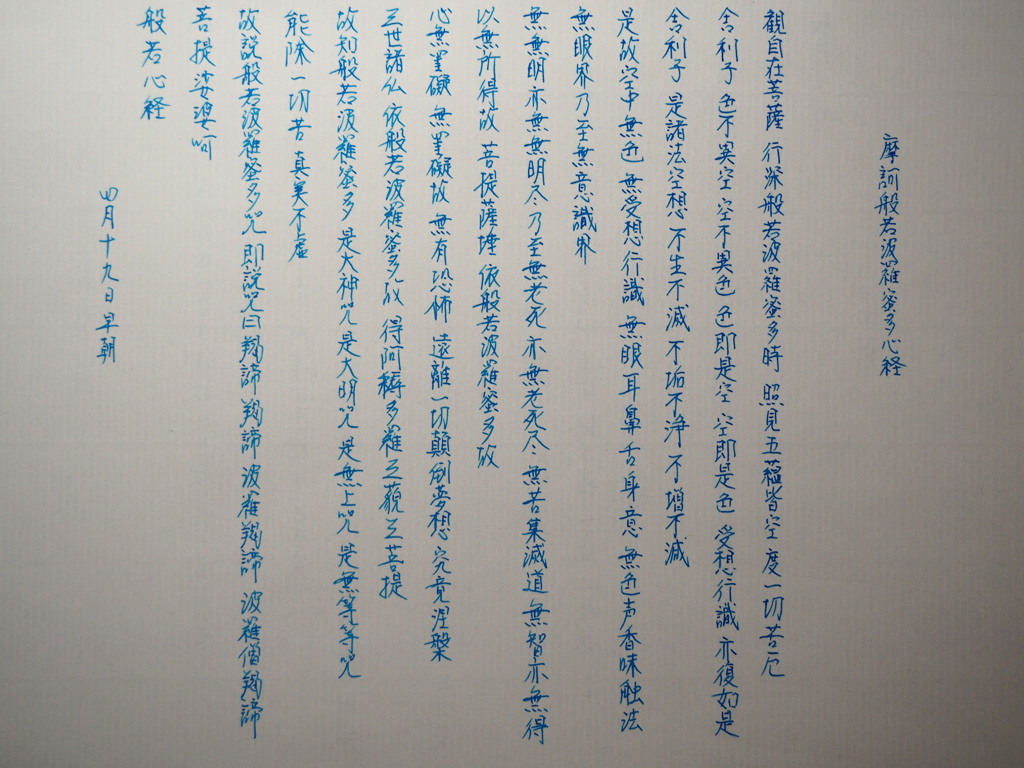 摩訶般若波羅蜜多心経
観自在菩薩 行深般若波羅蜜多時 照見五蘊皆空 度一切苦厄
舎利子 色不異空 空不異色 色即是空 空即是色 受想行識 亦復如是
舎利子 是諸法空想 不生不滅 不垢不浄 不増不減
是故空中 無色 無受想行識 無眼耳鼻舌身意 無色声香味触法
無眼界乃至無意識界
無無明亦無無明尽 乃至無老死 亦無老死尽 無苦集滅道 無智亦無得
以無所得故 菩提薩埵 依般若波羅蜜多故
心無罣礙 無罣礙故 無有恐怖 遠離一切顛倒夢想 究竟涅槃
三世諸仏 依般若波羅蜜多故 得阿耨多羅三藐三菩提
故知般若波羅蜜多 是大神咒 是大明咒 是無上咒 是無等等咒
能除一切苦 真実不虚
故説般若波羅蜜多咒 即説咒曰 羯諦 羯諦 波羅羯諦 波羅僧羯諦
菩提娑婆呵
般若心経
四月十九日早朝